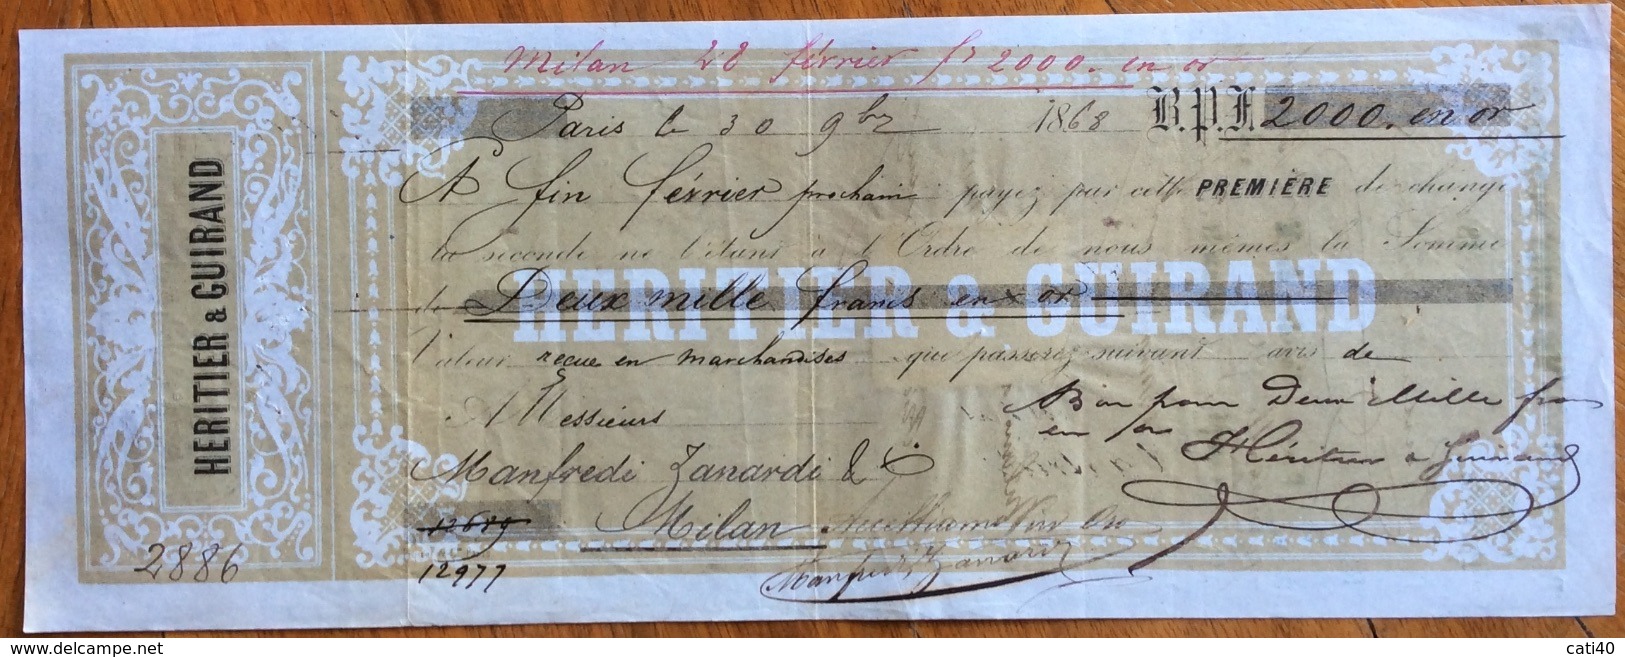 HERITIER & GUIRAND
2886
Milan 28 février fs 2000. en or
Paris le 30 9bre 1868 B.P.F. 2000. en or
A fin février prochain payez par cette PREMIÈRE de change
la seconde ne l'étant à l'Ordre de nous mêmes la Somme
de Deux mille francs en or
HERITIER & GUIRAND
Valeur reçue en marchandises que passerez suivant avis de
A Messieurs
Bon pour Deux Mille frs
en or
Manfredi Zanardi & Cie
Héritier & Guirand
12689
Milan
12977
Manfredi Zanardi
cati40